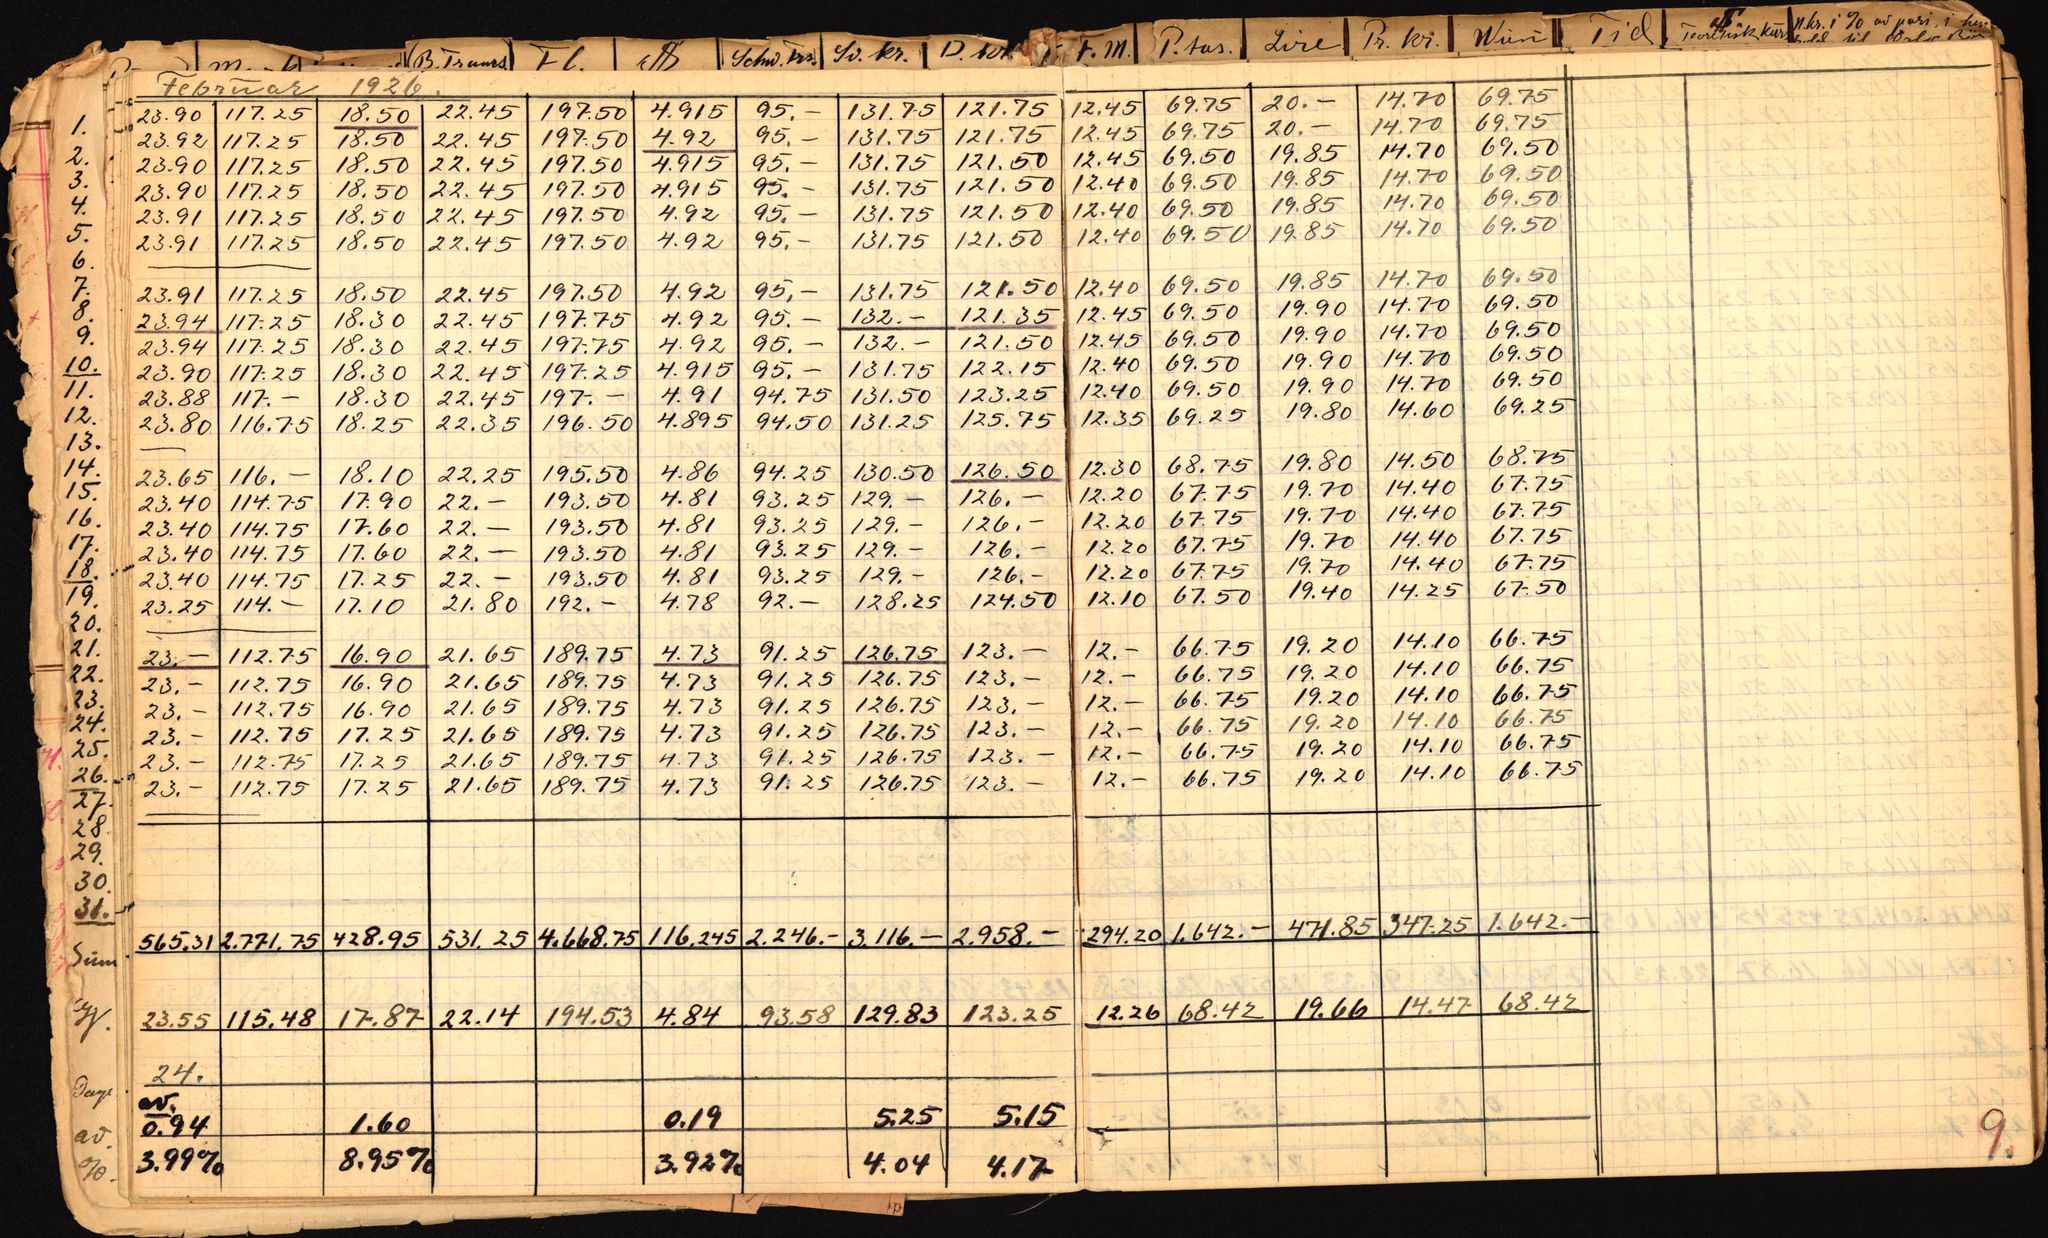 B. Francs Fl. Schw. Frs. Sv. kr. F. M. P.tas. Lire Pr. kr. Wien Tid
Februar 1926.
1. 23.90 117.25 18.50 22.45 197.50 4.915 95.- 131.75 121.75 12.45 69.75 20.- 14.70 69.75
2. 23.92 117.25 18.50 22.45 197.50 4.92 95.- 131.75 121.75 12.45 69.75 20.- 14.70 69.75
3. 23.90 117.25 18.50 22.45 197.50 4.915 95.- 131.75 121.50 12.45 69.50 19.85 14.70 69.50
4. 23.90 117.25 18.50 22.45 197.50 4.915 95.- 131.75 121.50 12.40 69.50 19.85 14.70 69.50
5. 23.91 117.25 18.50 22.45 197.50 4.92 95.- 131.75 121.50 12.40 69.50 19.85 14.70 69.50
6. 23.91 117.25 18.50 22.45 197.50 4.92 95.- 131.75 121.50 12.40 69.50 19.85 14.70 69.50
7.
8. 23.91 117.25 18.50 22.45 197.50 4.92 95.- 131.75 121.50 12.40 69.50 19.85 14.70 69.50
9. 23.94 117.25 18.30 22.45 197.75 4.92 95.- 132.- 121.35 12.45 69.50 19.90 14.70 69.50
10. 23.94 117.25 18.30 22.45 197.75 4.92 95.- 132.- 121.50 12.45 69.50 19.90 14.70 69.50
11. 23.90 117.25 18.30 22.45 197.25 4.915 95.- 131.75 122.15 12.40 69.50 19.90 14.70 69.50
12. 23.88 117.- 18.30 22.45 197.- 4.91 94.75 131.50 123.25 12.40 69.50 19.90 14.70 69.50
13. 23.80 116.75 18.25 22.35 196.50 4.895 94.50 131.25 125.75 12.35 69.25 19.80 14.60 69.25
14.
15. 23.65 116.- 18.10 22.25 195.50 4.86 94.25 130.50 126.50 12.30 68.75 19.80 14.50 68.75
16. 23.40 114.75 17.90 22.- 193.50 4.81 93.25 129.- 126.- 12.20 67.75 19.70 14.40 67.75
17. 23.40 114.75 17.60 22.- 193.50 4.81 93.25 129.- 126.- 12.20 67.75 19.70 14.40 67.75
18. 23.40 114.75 17.60 22.- 193.50 4.81 93.25 129.- 126.- 12.20 67.75 19.70 14.40 67.75
19. 23.40 114.75 17.25 22.- 193.50 4.81 93.25 129.- 126.- 12.20 67.75 19.70 14.40 67.75
20. 23.25 114.- 17.10 21.80 192.- 4.78 92.- 128.25 124.50 12.10 67.50 19.40 14.25 67.50
21.
22. 23.- 112.75 16.90 21.65 189.75 4.73 91.25 126.75 123.- 12.- 66.75 19.20 14.10 66.75
23. 23.- 112.75 16.90 21.65 189.75 4.73 91.25 126.75 123.- 12.- 66.75 19.20 14.10 66.75
24. 23.- 112.75 16.90 21.65 189.75 4.73 91.25 126.75 123.- 12.- 66.75 19.20 14.10 66.75
25. 23.- 112.75 17.25 21.65 189.75 4.73 91.25 126.75 123.- 12.- 66.75 19.20 14.10 66.75
26. 23.- 112.75 17.25 21.65 189.75 4.73 91.25 126.75 123.- 12.- 66.75 19.20 14.10 66.75
27. 23.- 112.75 17.25 21.65 189.75 4.73 91.25 126.75 123.- 12.- 66.75 19.20 14.10 66.75
28.
29.
30.
31.
Sum 565.31 2.771.75 428.95 531.25 4.668.75 116.245 2.246.- 3.116.- 2.958.- 294.20 1.642.- 471.85 347.25 1.642.-
23.55 115.48 17.87 22.14 194.53 4.84 93.58 129.83 123.25 12.26 68.42 19.66 14.47 68.42
Dage 24.
av.
av. 0.94 1.60 0.19 5.25 5.15
% 3.99% 8.95% 3.92% 4.04 4.17
9.